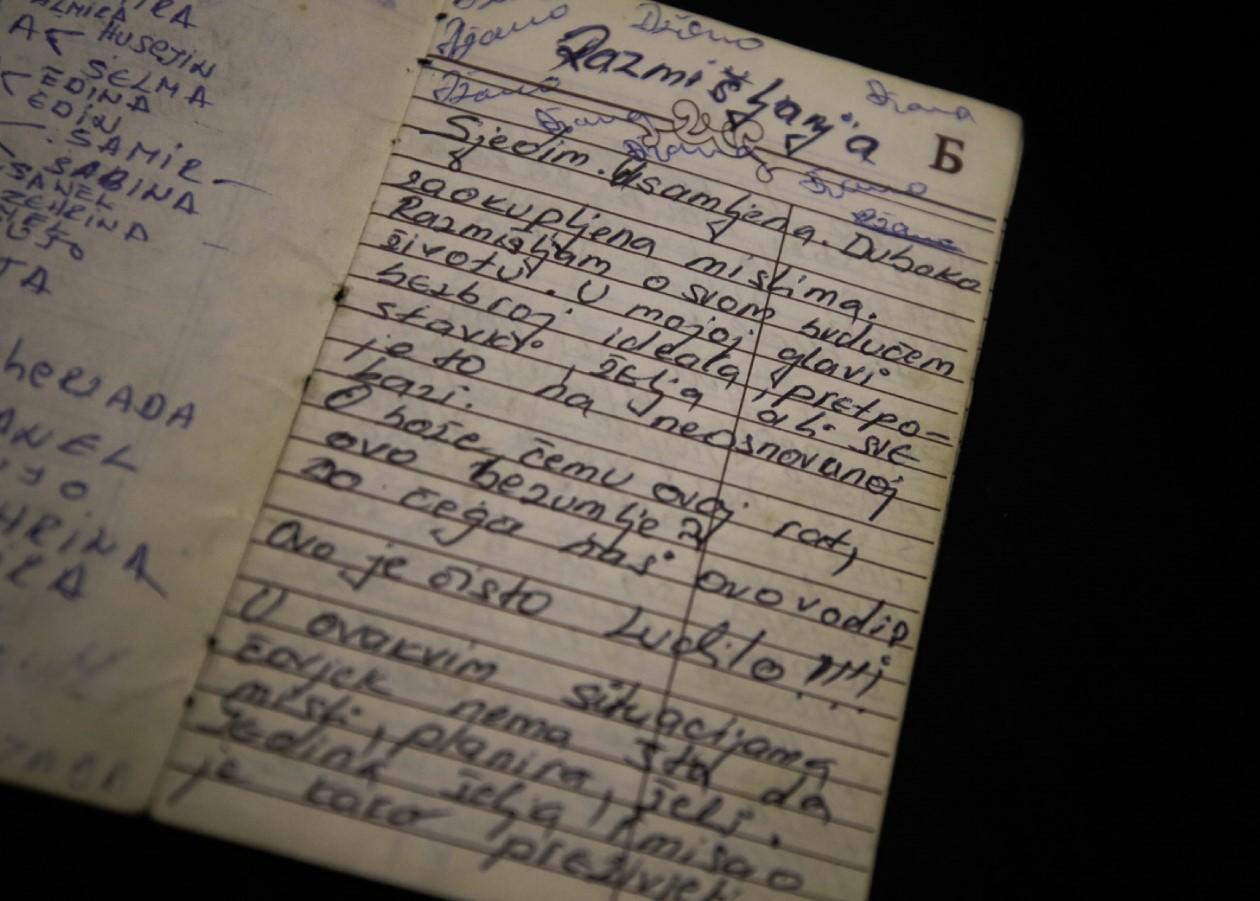 HUSEJIN
SELMA
EDINA
EDIN
SAMIR
SABINA
SANEL
ZEHRINA
TA
ADA
ANEL
HRINA
RA
Džano
Džano
Razmišljanja
Džano
Džano
Džano
Džano
Džano
Džano
Б
Sjedim. Usamljena. Duboko
zaokupljena mislima.
Razmišljam o svom budućem
životu. U mojoj glavi
bezbroj ideala, pretpo-
stavki, želja ali sve
je to na neosnovanoj
bazi.
O bože, čemu ovaj rat,
ovo bezumlje?
Do čega nas ovo vodi?
Ovo je čisto ludilo!!!!
U ovakvim situacijama
čovjek nema šta da
misli, planira, želi.
Jedina želja i misao
je kako preživjeti